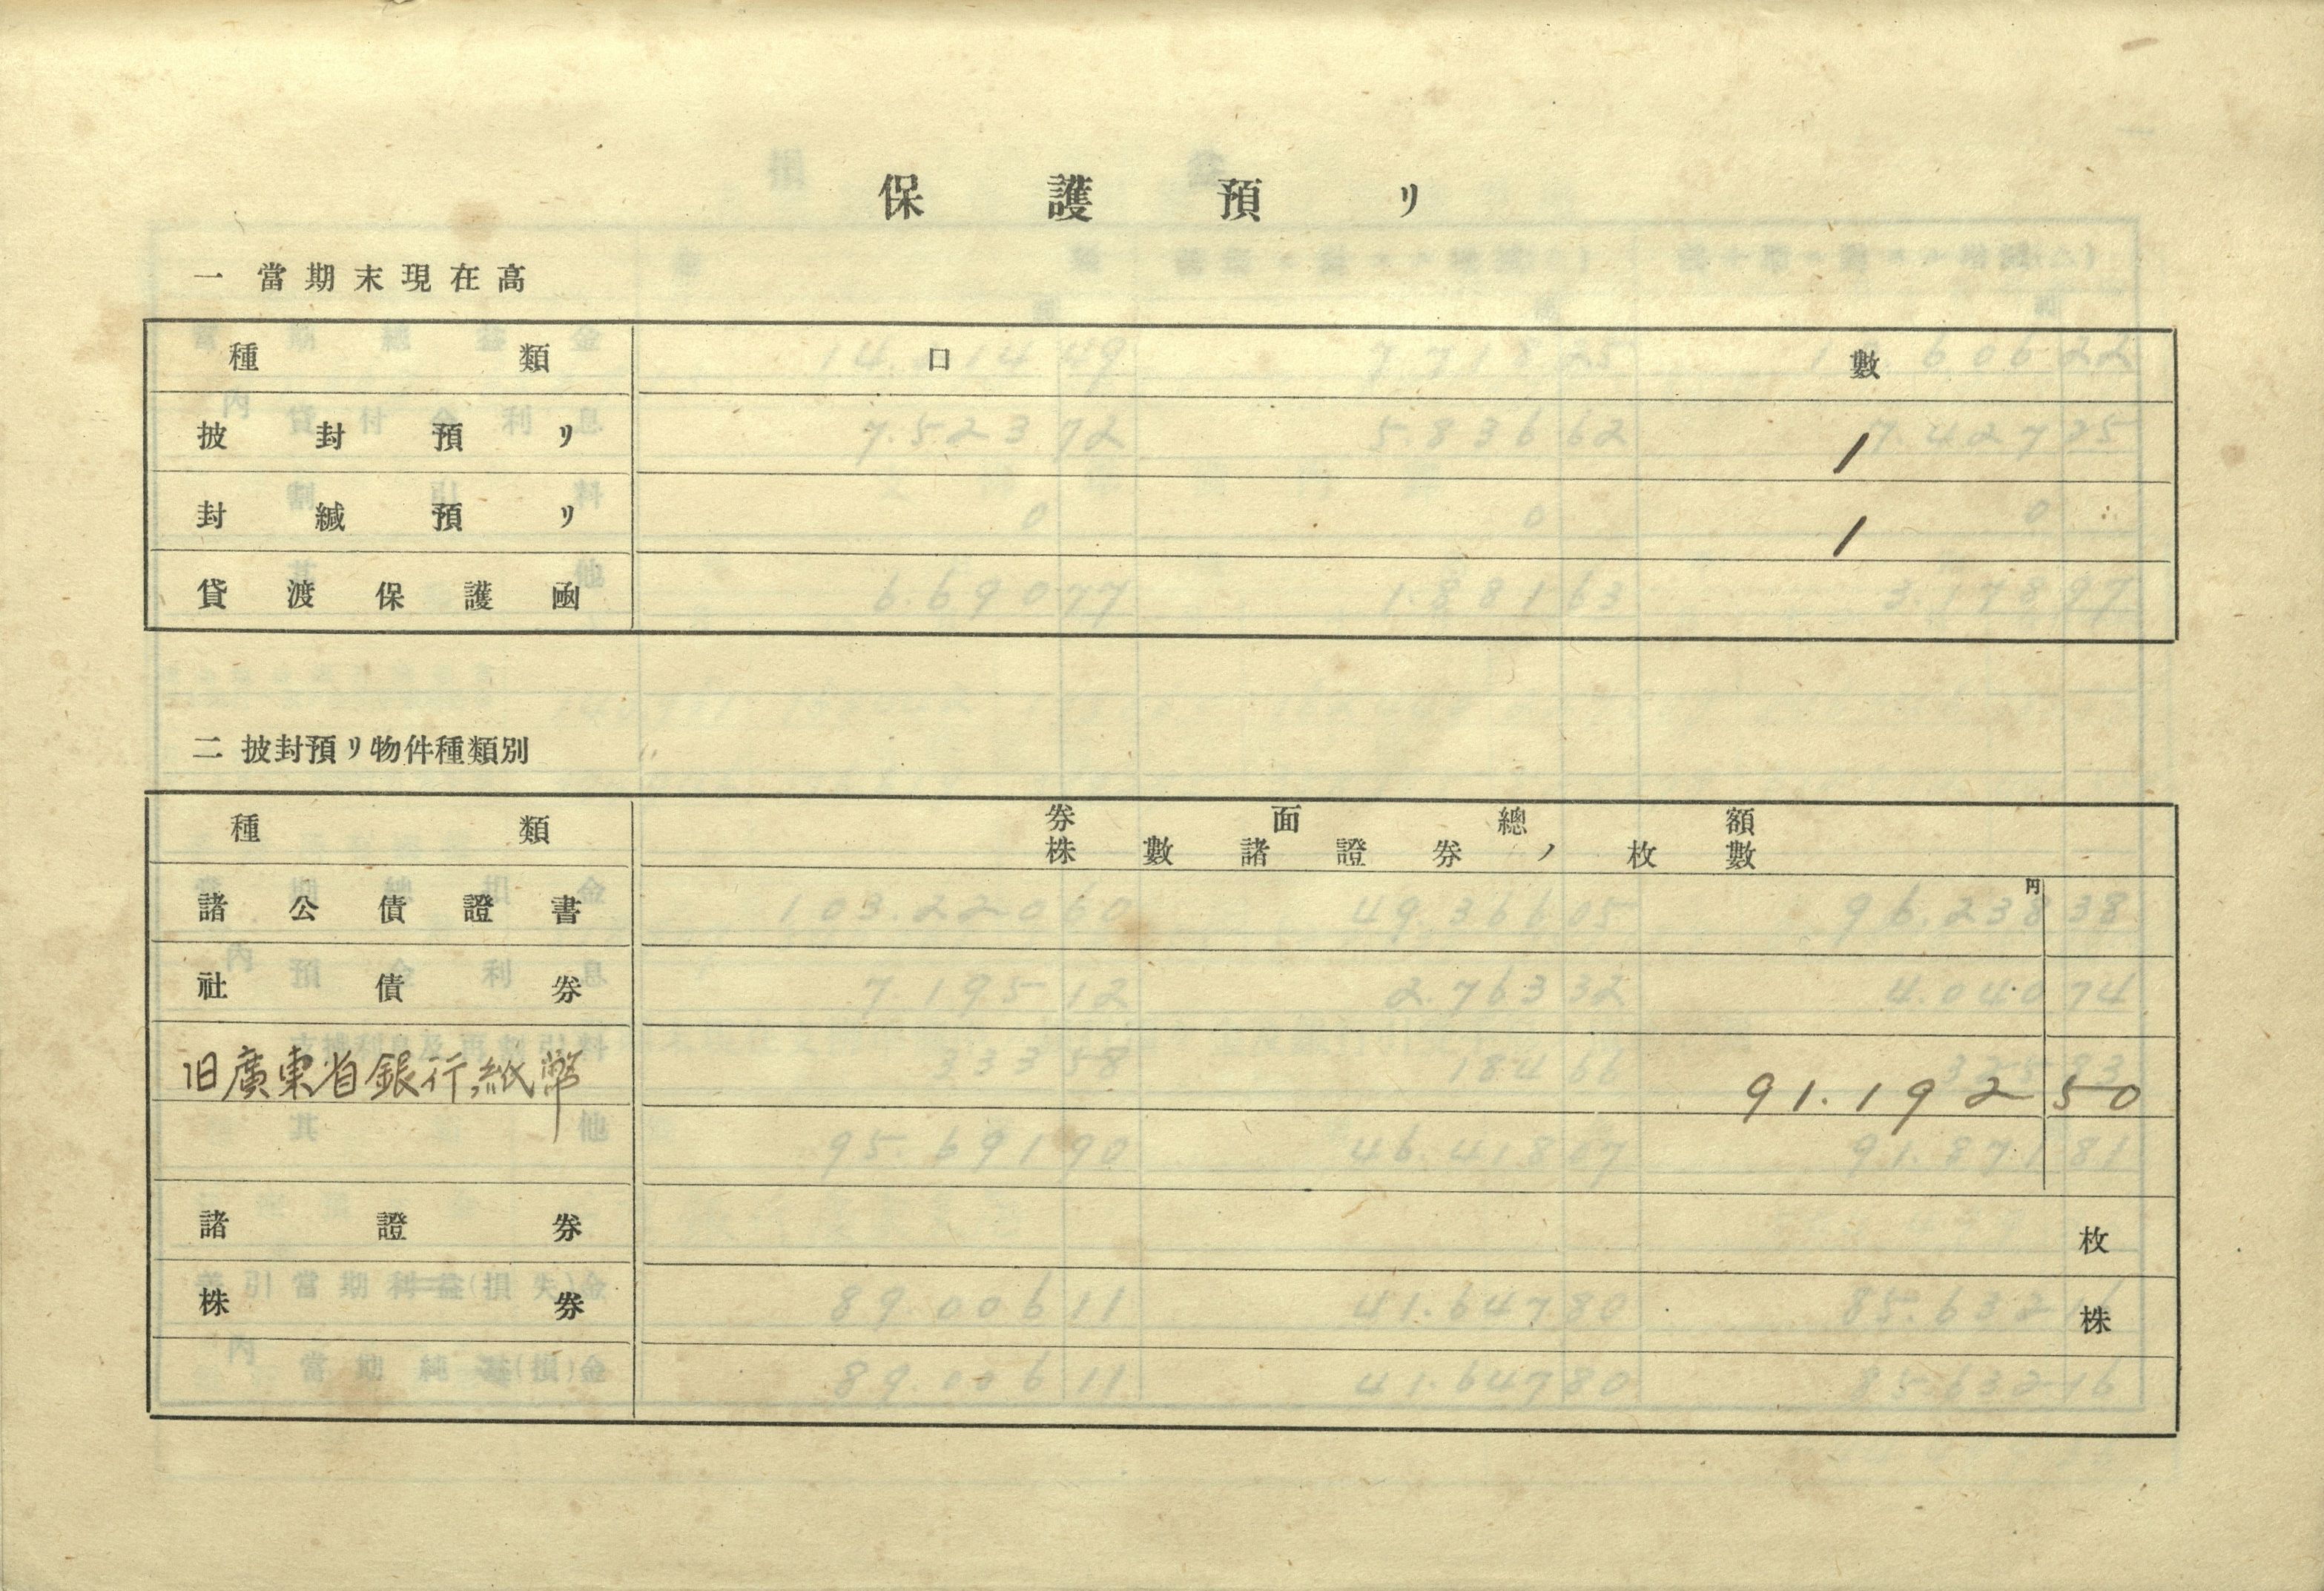 保護預リ
一 當期末現在高
種類 口數
披封預リ 1
封緘預リ 1
貸渡保護凾
二 披封預リ物件種類別
種類 券面總額
株數諸證券ノ枚數
円
諸公債證書
社債券
旧廣東省銀行紙幣 91.192 50
諸證券 枚
株券 株